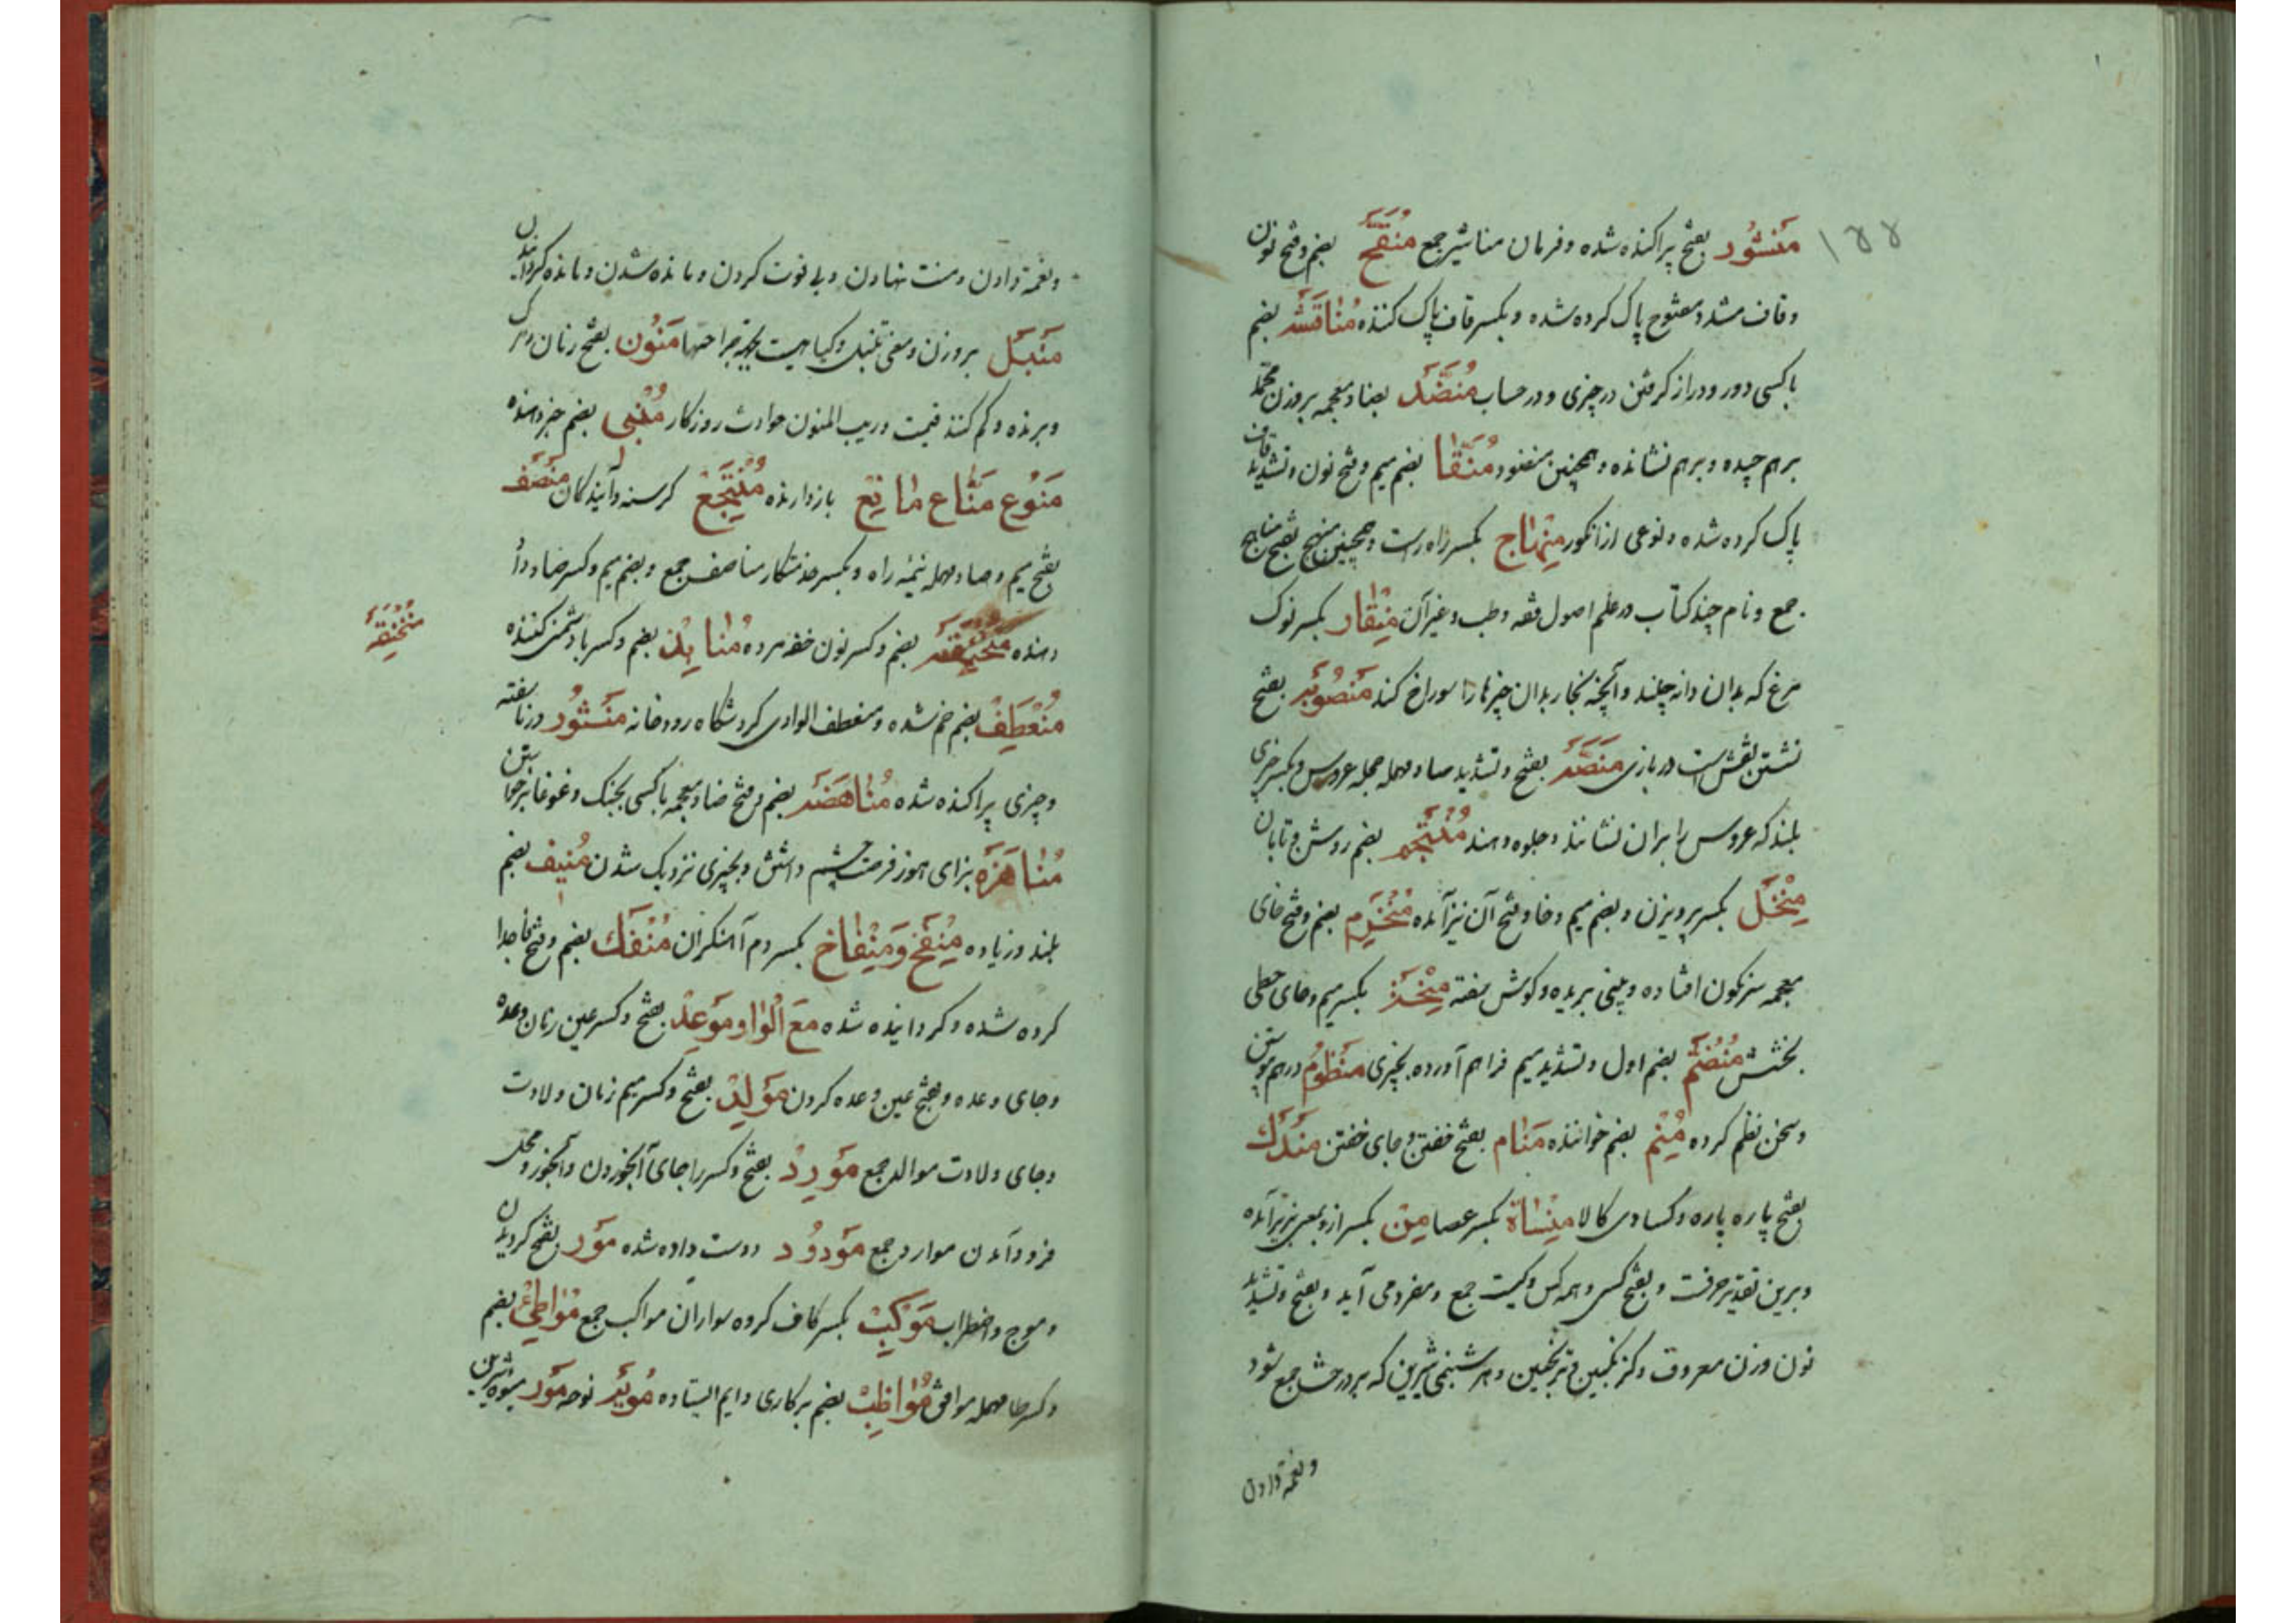 ۱۴۴
مَنشُور بفتح پراکنده شده و فرمان مناشیر جمع مُنَقَّح بضم و فتح نون
و قاف مشدد مفتوح پاک کرده شده و بکسر قاف پاک کننده مُناقَشَه بضم
با کسی دور و دراز گرفتن در چیزی و در حساب مُنَضَّد بضاد معجمه بر وزن محمد
برهم چیده و برهم نشانده و همچنین منضود مُنَقّا بضم میم و فتح نون و تشدید قاف
پاک کرده شده و نوعی از انکور مِنهاج بکسر راه راست و همچنین منهج بفتح مناهج
جمع و نام چند کتاب در علم اصول فقه و طب و غیر آن مِنقار بکسر نوک
مرغ که بدان دانه چیند و آنچه نجار بدان چیزها را سوراخ کند مَنصُوبَه بفتح
نشستن نقش است در بازی مَنَصَّه بفتح و تشدید صاد مهمله حجله عروس و بکسر چیزی
بلند که عروس را بران نشانند و جلوه دهند بضم روشن و تابان
مِنخَل بکسر پرویزن و بضم میم و خا و فتح آن نیز آمده مُنخَرِم بضم و فتح خای
معجمه سرنکون افتاده و بینی بریده و کوش سفته بکسر میم و حای حطی
بخشش مُنضَمّ بضم اول و تشدید میم فراهم آورده بچیزی مَنظُوم درهم پیوستن
و سخن نظم کرده بضم خواننده مَنام بفتح خفتن و جای خفتن مَندَک
بفتح پاره پاره و کسادی کالا مِنساة بکسر عصا مِن بکسر از و بمعنی نیز برآمده
و برین تقدیر حرفست و بفتح کسی و همه کس و کیست جمع و مفرد می آید و بفتح و تشدید
نون وزن معروف و کزنکبین و ترنجبین و هر شبنمی شیرین که بر درختی جمع شود
و نعمة دادن
و نعمة دادن و منت نهادن و بی قوت کردن و مانده شدن و مانده کردانیدن
مَنبَل بر وزن و معنی تنبل و کیاهیست بجهة جراحتها مَنُون بفتح زنان و مرک
و برنده و کم کننده قیمت و ریب المنون حوادث روزکار مُنبِی بضم خبر دهنده
مَنُوع مَنّاع مانِع باز دارنده مُنتَجِع کرسنه و آیندکان مَنصَف
بفتح میم و صاد مهمله نیمه راه و بکسر خدمتکار مناصف جمع و بضم میم و کسر صاد داد
دهنده مُنخَنِقَه بضم و کسر نون خفه مرده مُنابِذ بضم و کسر با دشمنی کننده
مُنخَنِقَه
مُنعَطِف بضم خم شده و منعطف الوادی کردشکاه رودخانه مَنثُور در ناسفته
و چیزی پراکنده شده مُناهَضَه بضم و فتح ضاد معجمه با کسی بجنک و غوغا برخواستن
مُناهَزَه بزای هوز فرصت چشم داشتن و بچیزی نزدیک شدن مُنیف بضم
بلند و زیاده مِنفَخ وَمِنفاخ بکسر دم آهنکران مُنفَکّ بضم و فتح فا جدا
کرده شده و کردانیده شده مَعَ الواو مَوعِد بفتح و کسر عین زمان وعده
و جای وعده و بفتح عین وعده کردن مَولِد بفتح و کسر میم زمان ولادت
و جای ولادت موالد جمع مَورِد بفتح و کسر را جای آبخوردن و آبخور و محل
فرود آمدن موارد جمع مَودُود دوست داده شده مَور بفتح کردیدن
و موج و اضطراب مَوکِب بکسر کاف کروه سواران مواکب جمع مُواطِئ بضم
و کسر طا مهمله موافق مُواظِب بضم برکاری دایم ایستاده مُویَه نوحه مَور میوه شیرین